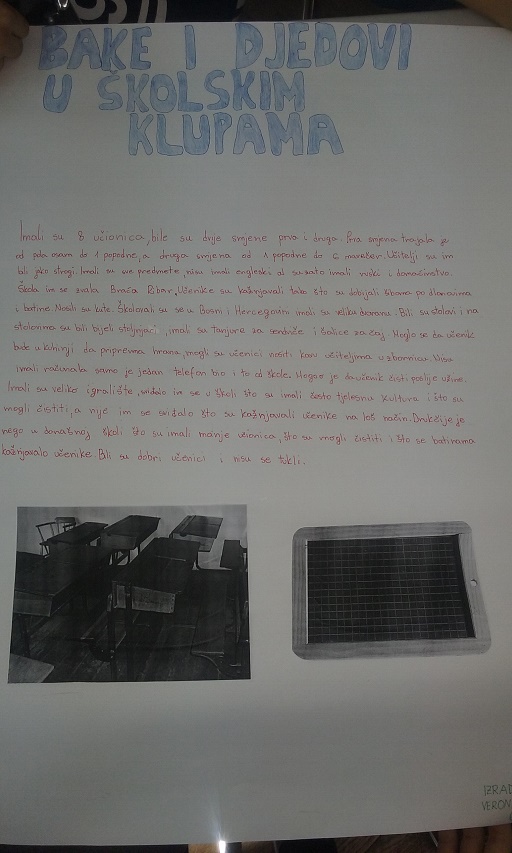 BAKE I DJEDOVI
U ŠKOLSKIM
KLUPAMA
Imali su 8 učionica, bile su dvije smjene prva i druga. Prva smjena trajala je
od pola osam do 1 popodne, a druga smjena od 1 popodne do 6 navečer. Učitelji su im
bili jako strogi. Imali su sve predmete, nisu imali engleski al su zato imali ruski i domaćinstvo.
Škola im se zvala Braća Ribar. Učenike su kažnjavali tako što su dobijali šibama po dlanovima
i batine. Nosili su kute. Školovali su se u Bosni i Hercegovini imali su veliku dvoranu. Bili su stolovi i na
stolovima su bili bijeli stoljnjaci, imali su tanjure za sendviče i šalice za čaj. Moglo se da učenik
bude u kuhinji da priprema hranu, mogli su učenici nositi kavu učiteljima u zbornicu. Nisu
imali računala samo je jedan telefon bio i to od škole. Mogao je da učenik čisti poslije užine.
Imali su veliko igralište, sviđalo im se u školi što su imali često tjelesnu kulturu i što su
mogli čistiti, a nije im se sviđalo što su kažnjavali učenike na loš način. Drukčije je
nego u današnoj školi što su imali manje učionica, što su mogli čistiti i što se batinama
kažnjavalo učenike. Bili su dobri učenici i nisu se tukli.
IZRAD
VERON